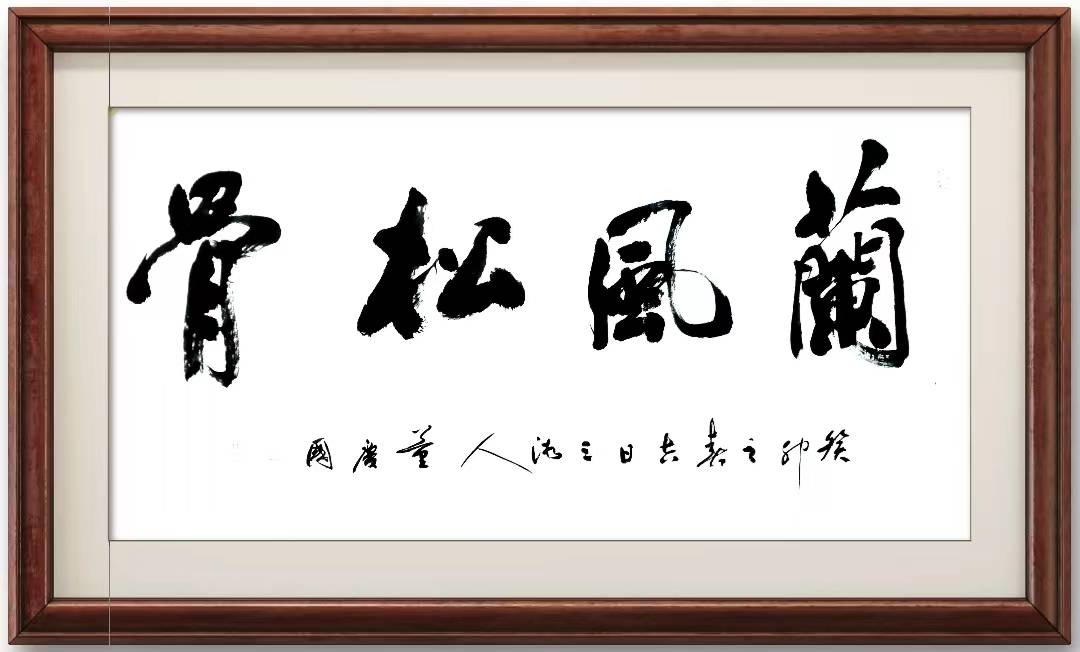 蘭風松骨
癸卯之春吉日三湘人董慶國